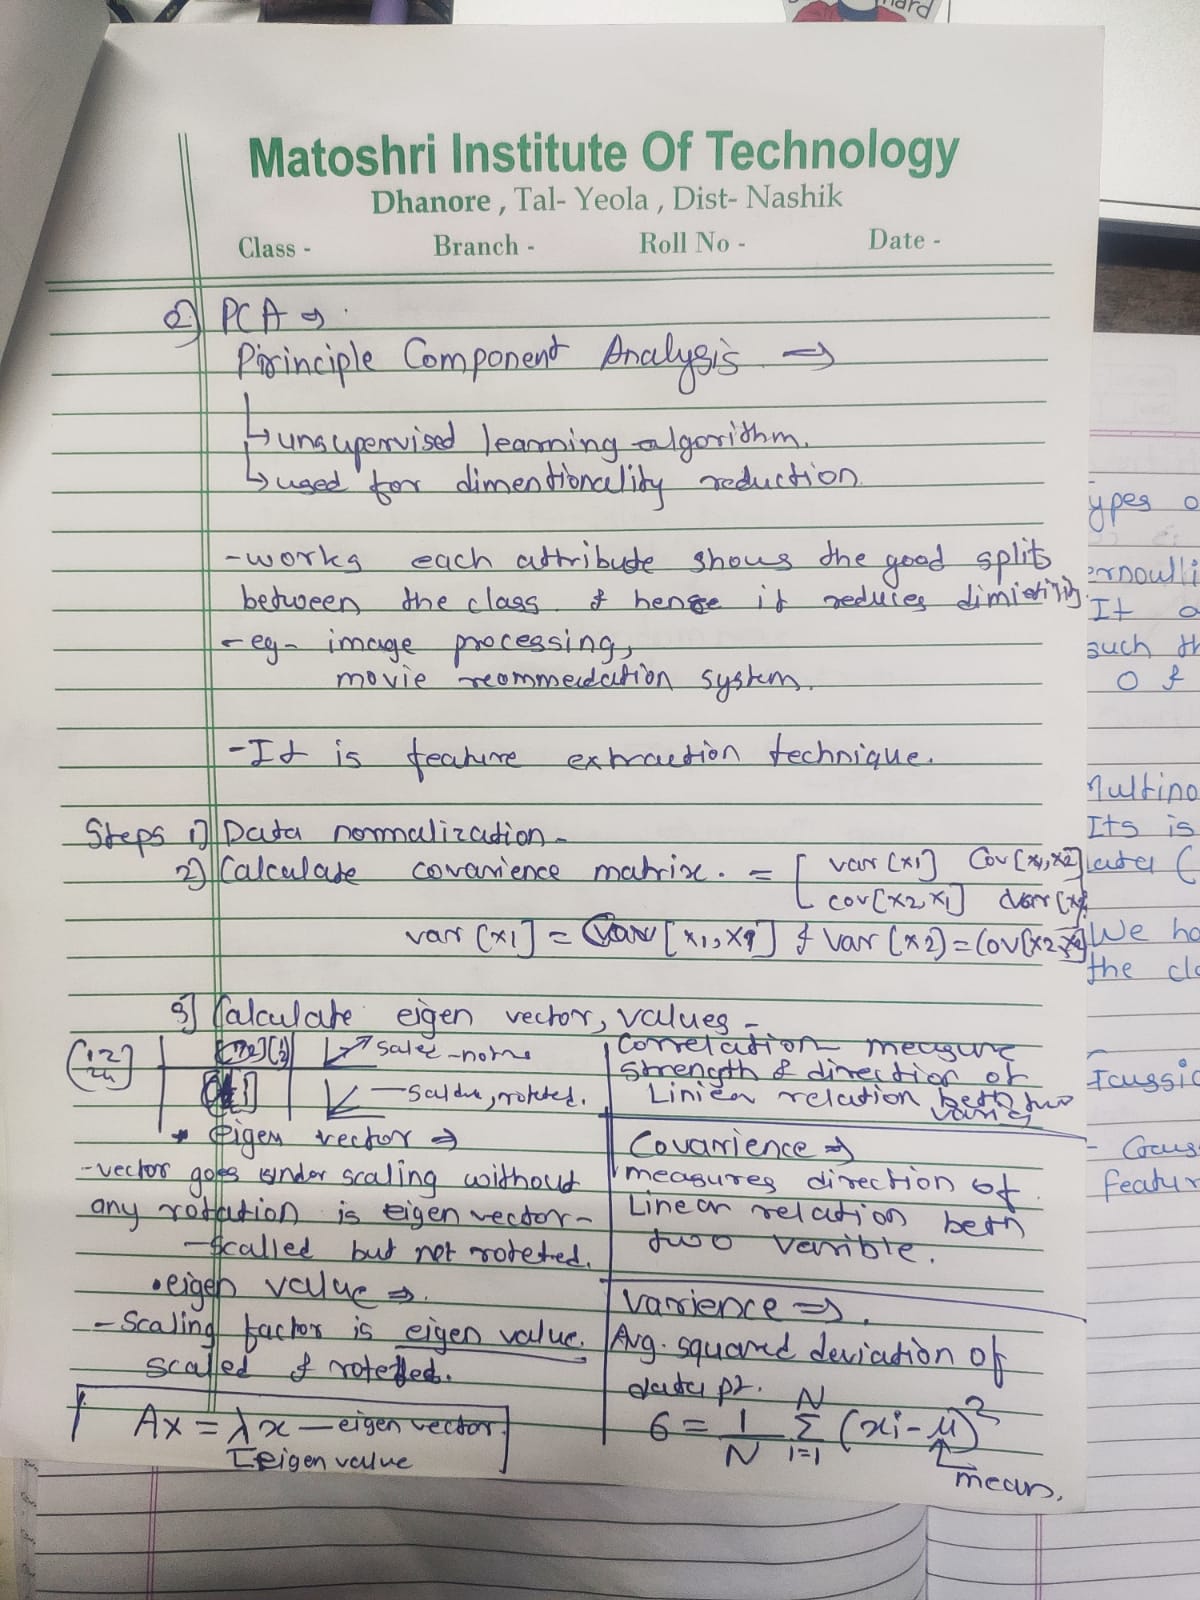 nard
Matoshri Institute Of Technology
Dhanore , Tal- Yeola , Dist- Nashik
Class - Branch - Roll No - Date -
Q) PCA →
Pirinciple Component Analysis ⇒
↳ unsupervised learning algorithm.
↳ used for dimentionality reduction
- works each attribute shows the good splits
between the class & hense it reduces
- eg - image processing,
movie reommedation system.
- It is feature extraction technique.
Steps 1) Data normalization -
2) Calculate covarience matrix. = [ var [x1] Cov[x1,x2]
cov[x2,x1]
var [x1] = [x1, x1] & var [x2] = Cov[x2,
3] Calculate eigen vector, values -
scaled, roteted.
* eigen vector ⇒
- vector goes under scaling without
any rotation is eigen vector -
- scalled but not roteted.
• eigen value ⇒.
- Scaling factor is eigen value.
scaled & roteted.
Ax = λx — eigen vector
eigen value
Correlation measure
strength & direction of
Linier relation betn two
Covarience ⇒
measures direction of
Linear relation betn
two varible.
Varience ⇒.
Avg. squared deviation of
data pt.
6 = 1/N N Σ i=1 (xi - μ)²
mean.
ypes o
ernoulli
It a
such th
O &
Multino
Its is
We ha
the cla
- Gaus
featur